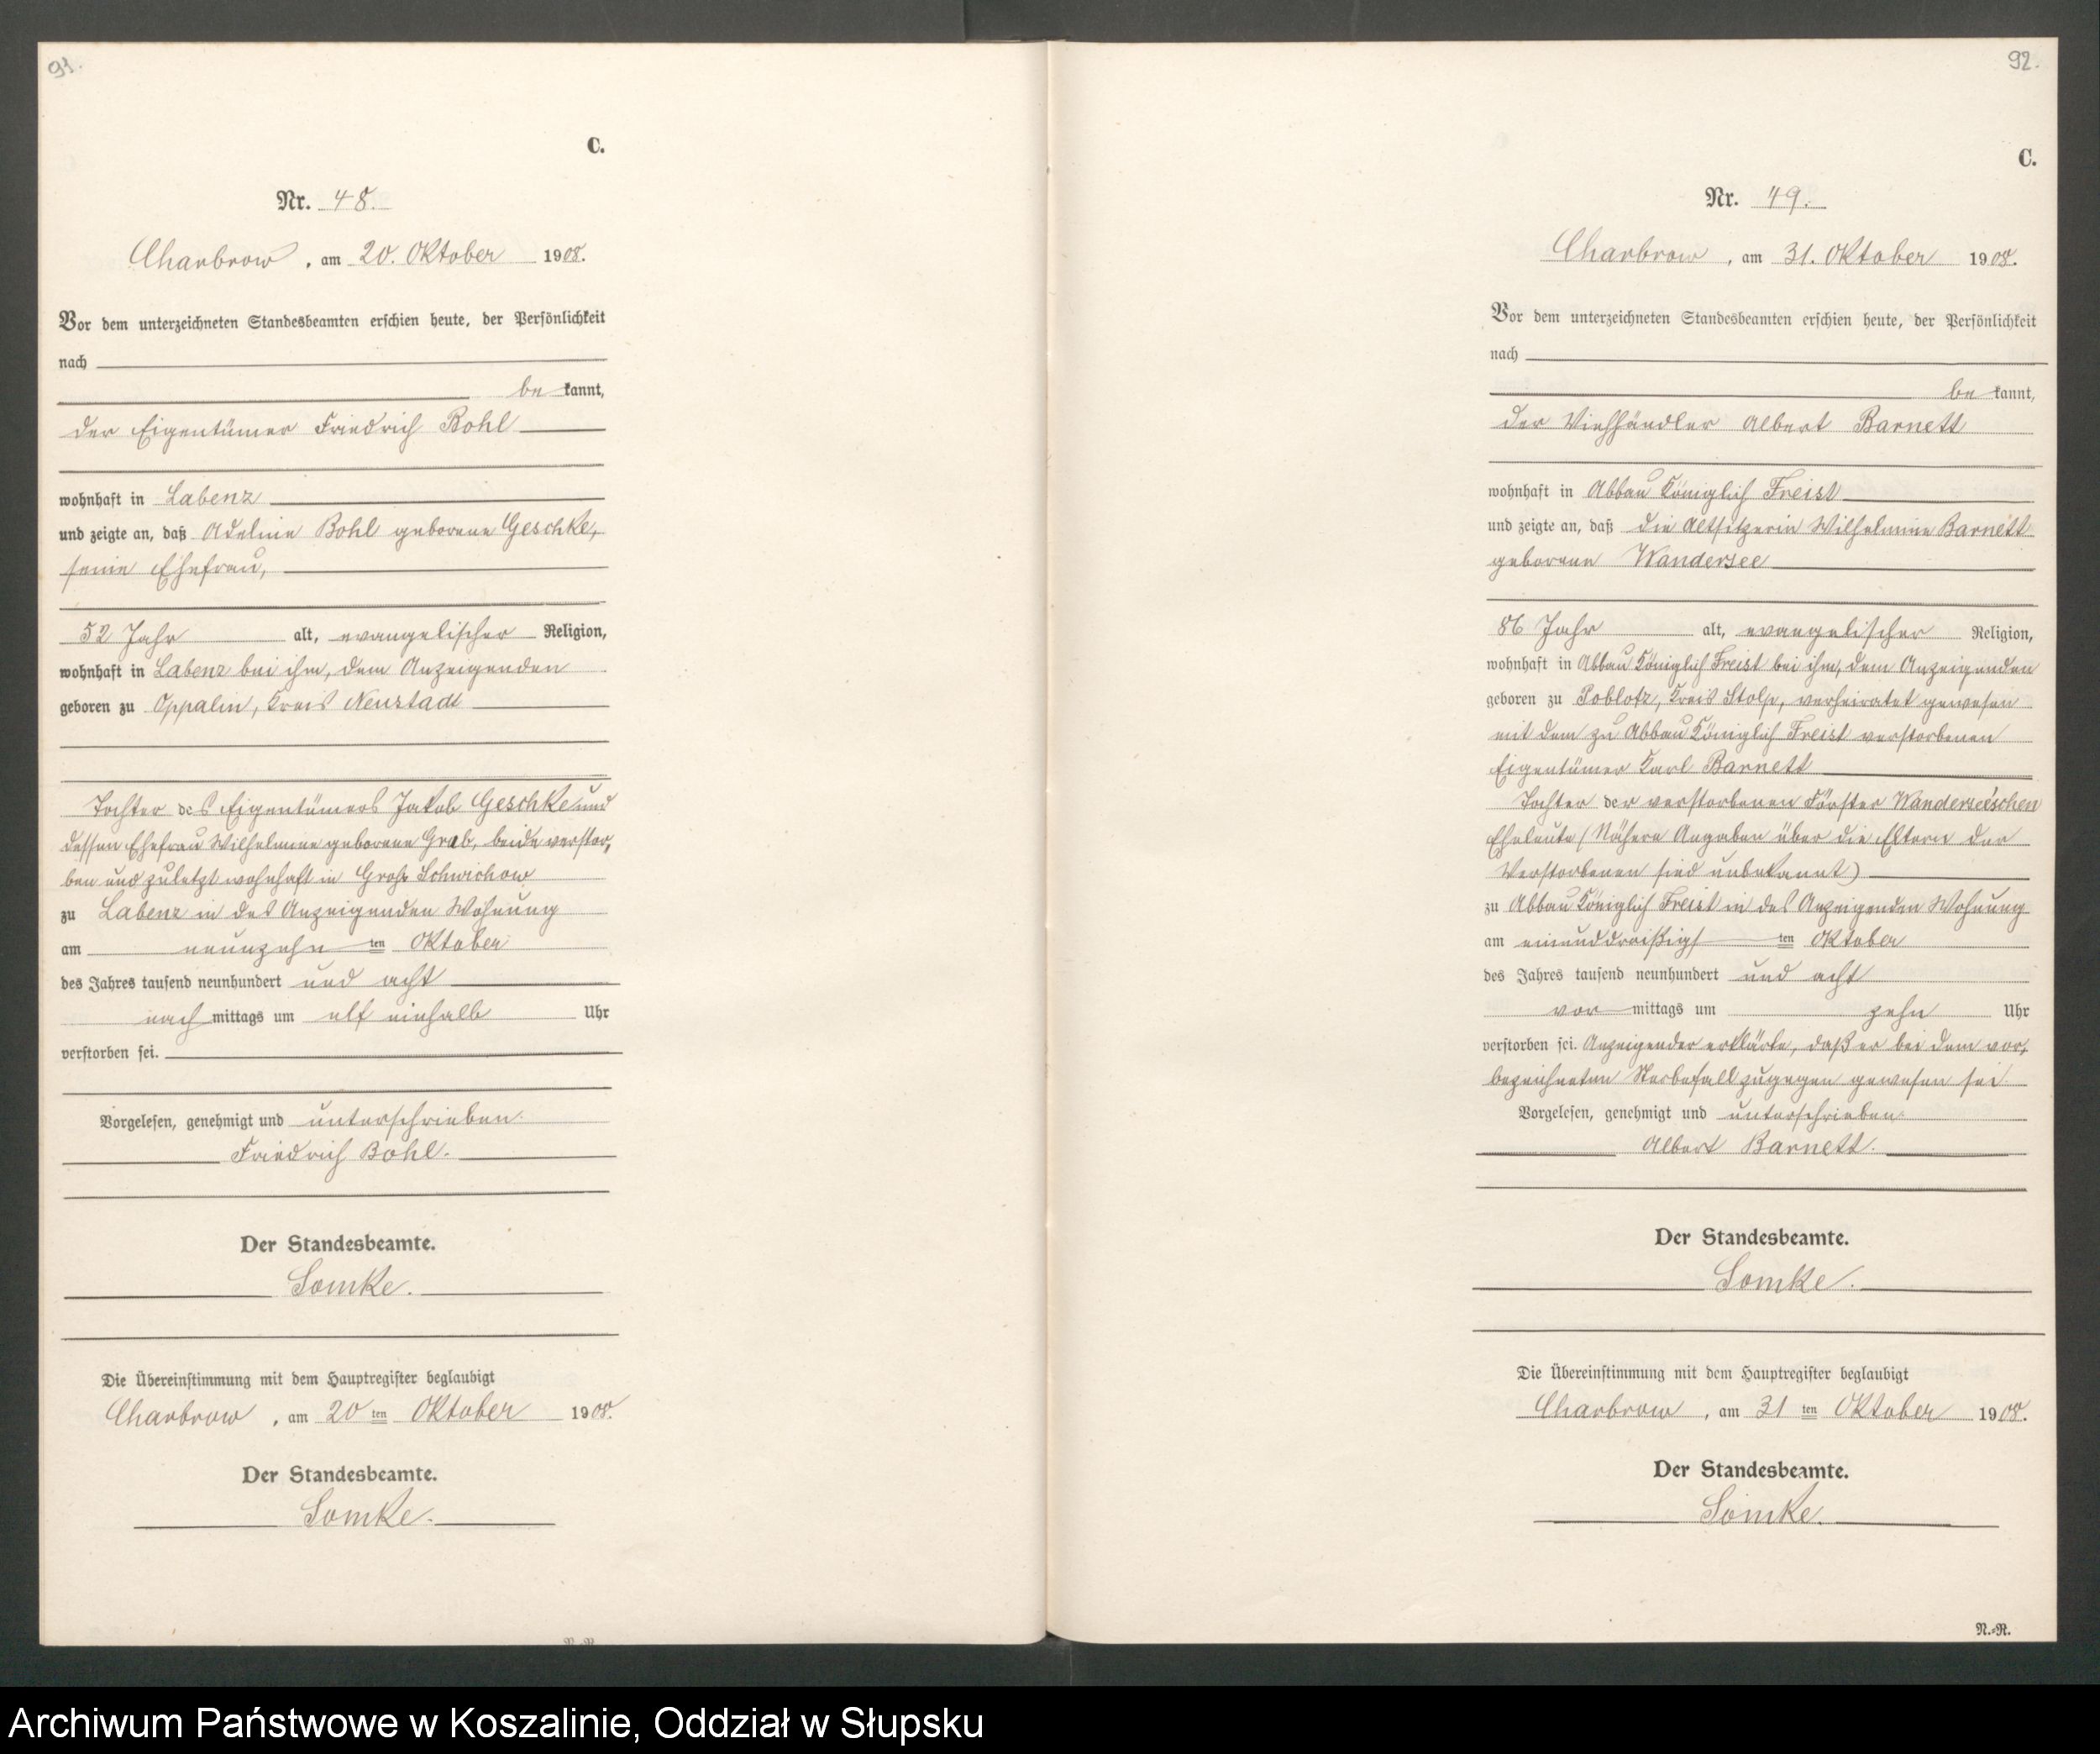 91.
C.
Nr. 48.
Charbrow, am 20. Oktober 1908.
Vor dem unterzeichneten Standesbeamten erschien heute, der Persönlichkeit
nach
be kannt,
der Eigentümer Friedrich Bohl
wohnhaft in Labenz
und zeigte an, daß Adeline Bohl geborene Geschke,
seine Ehefrau,
52 Jahr alt, evangelischer Religion,
wohnhaft in Labenz bei ihm, dem Anzeigenden
geboren zu Oppalin, Kreis Neustadt
Tochter des Eigentümers Jakob Geschke und
dessen Ehefrau Wilhelmine geborene Grab, beide verstor,
ben und zuletzt wohnhaft in Groß Schwichow
zu Labenz in des Anzeigenden Wohnung
am neunzehn ten Oktober
des Jahres tausend neunhundert und acht
nach mittags um elf einhalb Uhr
verstorben sei.
Vorgelesen, genehmigt und unterschrieben.
Friedrich Bohl.
Der Standesbeamte.
Somke.
Die Übereinstimmung mit dem Hauptregister beglaubigt
Charbrow, am 20 ten Oktober 1908.
Der Standesbeamte.
Somke.
92.
C.
Nr. 49.
Charbrow, am 31. Oktober 1908.
Vor dem unterzeichneten Standesbeamten erschien heute, der Persönlichkeit
nach
be kannt,
der Viehhändler Albert Barnett
wohnhaft in Abbau Königlich Freist
und zeigte an, daß die Altsitzerin Wilhelmine Barnett
geborene Wandersee
86 Jahr alt, evangelischer Religion,
wohnhaft in Abbau Königlich Freist bei ihm, dem Anzeigenden
geboren zu Poblotz, Kreis Stolp, verheiratet gewesen
mit dem zu Abbau Königlich Freist verstorbenen
Eigentümer Karl Barnett
Tochter der verstorbenen Förster Wandersee'schen
Eheleute (Nähere Angaben über die Eltern der
Verstorbenen sind unbekannt)
zu Abbau Königlich Freist in des Anzeigenden Wohnung
am einunddreißigs ten Oktober
des Jahres tausend neunhundert und acht
vor mittags um zehn Uhr
verstorben sei. Anzeigender erklärte, daß er bei dem vor,
bezeichneten Sterbefall zugegen gewesen sei.
Vorgelesen, genehmigt und unterschrieben.
Albert Barnett.
Der Standesbeamte.
Somke.
Die Übereinstimmung mit dem Hauptregister beglaubigt
Charbrow, am 31 ten Oktober 1908.
Der Standesbeamte.
Somke.
N.=R.
Archiwum Państwowe w Koszalinie, Oddział w Słupsku